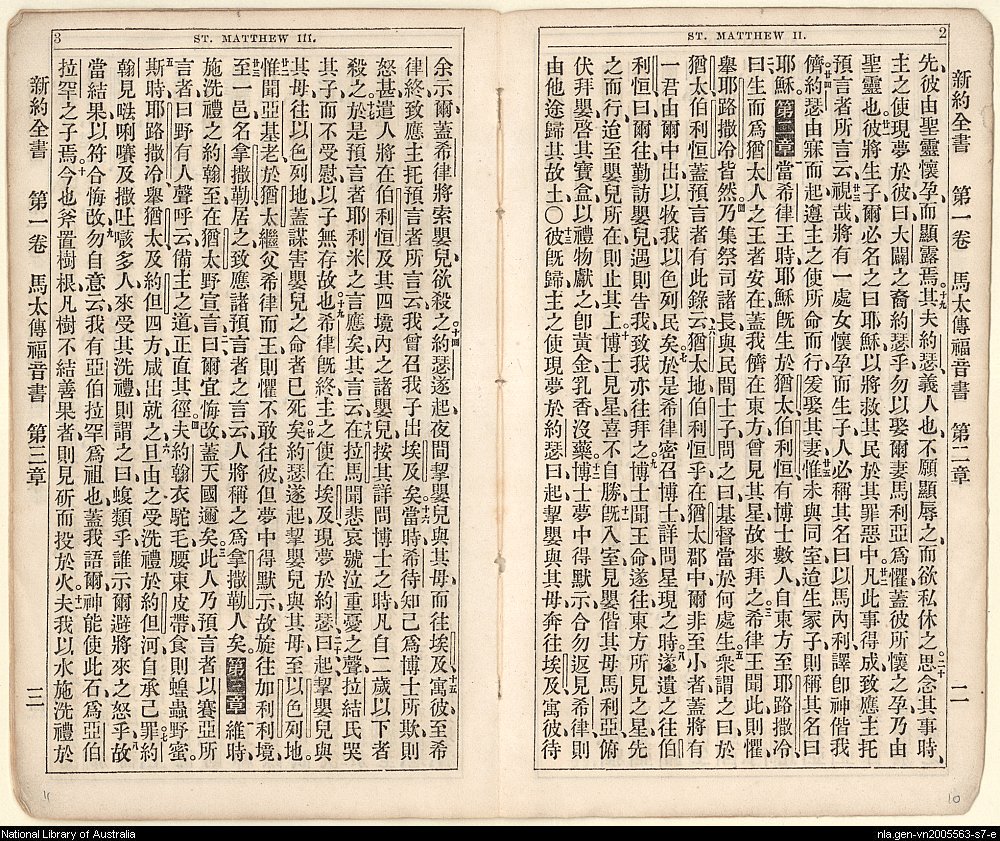 2
ST. MATTHEW II.
新約全書 第一卷 馬太傳福音書 第二章 二
先彼由聖靈懷孕、而顯露焉、其夫約瑟義人也、不願顯辱之、而欲私休之、思念其事時、
主之使現夢於彼曰、大闢之裔約瑟乎、勿以娶爾妻馬利亞爲懼、蓋彼所懷之孕、乃由
聖靈也、彼將生子、爾必名之曰耶穌、以將救其民於其罪惡中、凡此事得成、致應主托
預言者所言云、視哉、將有一處女、懷孕而生子、人必稱其名曰以馬內利、譯卽神偕我
儕、約瑟由寐而起、遵主之使所命而行、爰娶其妻、惟未與同室、迨生冢子、則稱其名曰
耶穌。第二章 當希律王時、耶穌旣生於猶太伯利恒、有博士數人、自東方至耶路撒冷、
曰、生而爲猶太人之王者安在、蓋我儕在東方曾見其星、故來拜之、希律王聞此則懼、
舉耶路撒冷皆然、乃集祭司諸長、與民間士子、問之曰、基督當於何處生、衆謂之曰、於
猶太伯利恒、蓋預言者有此錄云、猶太地伯利恒乎、在猶太郡中、爾非至小者、蓋將有
一君由爾中出、以牧我以色列民矣、於是希律密召博士、詳問星現之時、遂遣之往伯
利恒曰、爾往勤訪嬰兒、遇則告我、致我亦往拜之、博士聞王命遂往、東方所見之星、先
之而行、迨至嬰兒所在、則止其上、博士見星、喜不自勝、旣入室、見嬰偕其母馬利亞、俯
伏拜嬰、啓其寶盒、以禮物獻之、卽黃金乳香沒藥、博士夢中得默示、合勿返見希律、則
由他途歸其故土〇彼旣歸、主之使現夢於約瑟曰、起、挈嬰與其母、奔往埃及、寓彼、待
3
ST. MATTHEW III.
余示爾、蓋希律將索嬰兒、欲殺之、約瑟遂起、夜間挈嬰兒與其母、而往埃及、寓彼、至希
律終、致應主托預言者所言云、我曾召我子出埃及矣、當時希律知己爲博士所欺、則
怒甚、遣人將在伯利恒及其四境內之諸嬰兒、按其詳問博士之時、凡自二歲以下者
殺之、於是預言者耶利米之言應矣、其言云、在拉馬聞悲哀號泣重憂之聲、拉結民哭
其子、而不受慰、以子無存故也、希律旣終、主之使在埃及現夢於約瑟曰、起、挈嬰兒與
其母、往以色列地、蓋謀害嬰兒之命者已死矣、約瑟遂起、挈嬰兒與其母、至以色列地、
惟聞亞基老於猶太繼父希律而王、則懼不敢往彼、但夢中得默示、故旋往加利利境、
至一邑名拿撒勒居之、致應諸預言者之言云、人將稱之爲拿撒勒人矣。第三章 維時
施洗禮之約翰至、在猶太野宣言曰、爾宜悔改、蓋天國邇矣、此人乃預言者以賽亞所
言者、曰、野有人聲呼云、備主之道、正直其徑、夫約翰衣駝毛、腰束皮帶、食則蝗蟲野蜜、
斯時耶路撒冷、舉猶太、及約但四方、咸出就之、且由之受洗禮於約但河、自承己罪、約
翰見𠵽唎㘔及撒吐𠺝多人來受其洗禮、則謂之曰、蝮類乎、誰示爾避將來之怒乎、故
當結果、以符合悔改、勿自意云、我有亞伯拉罕爲祖也、蓋我語爾、神能使此石爲亞伯
拉罕之子焉、今也斧置樹根、凡樹不結善果者、則見斫而投於火、夫我以水施洗禮於
新約全書 第一卷 馬太傳福音書 第三章 三
10
National Library of Australia
nla.gen-vn2005563-s7-e